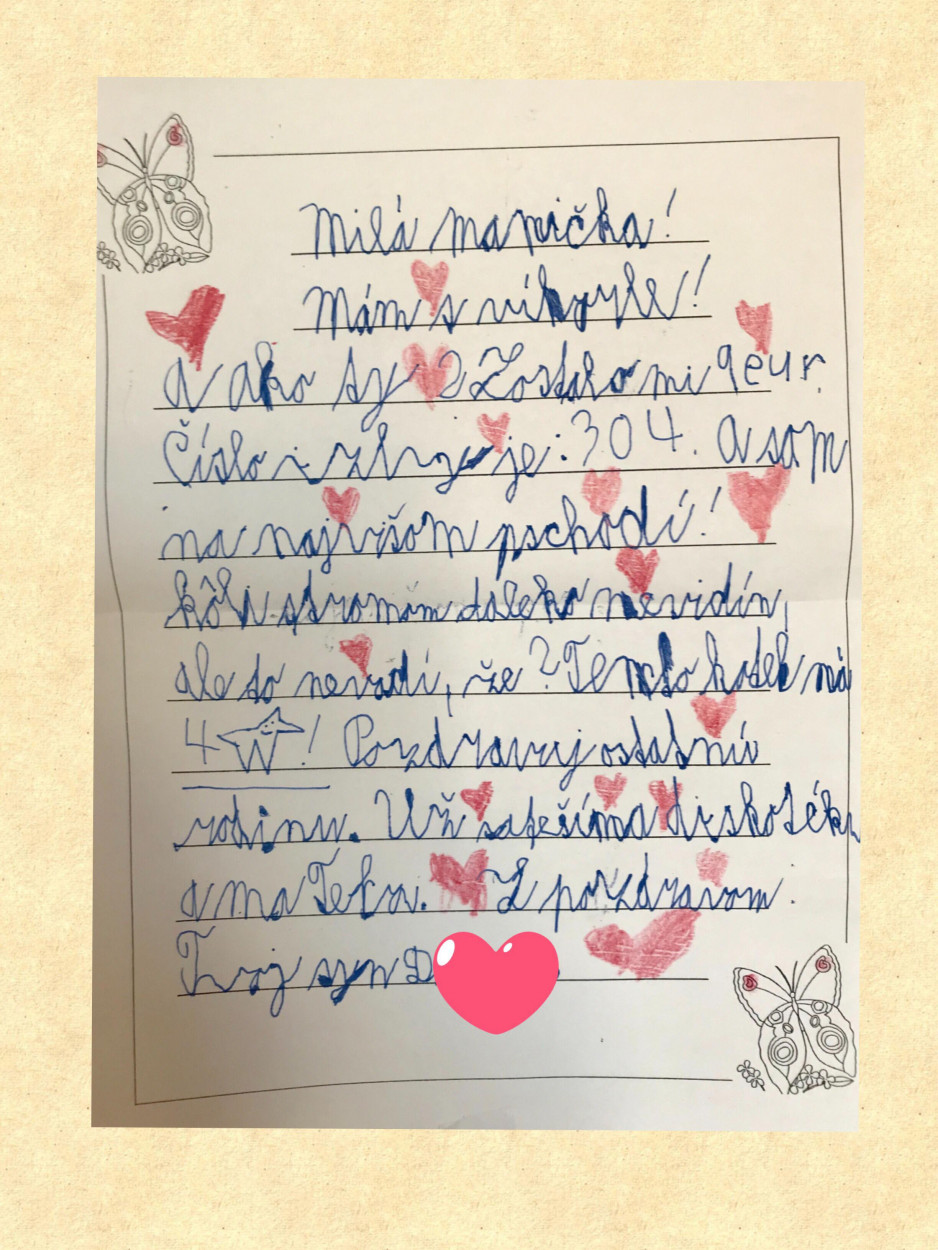 Milá mamička!
Mám s víborne!
A ako ty? Zostalo mi 9 eur.
Číslo izby je: 304. A som
na najvišom pschodí!
kôli stromom daleko nevidín,
ale to nevadí, že? Tento hotel má
4 !  Pozdravuj ostatnú
rodinu. Už sa tešíma diskotéku
a ma Teba. Z pozdravom.
Tvoj syn D